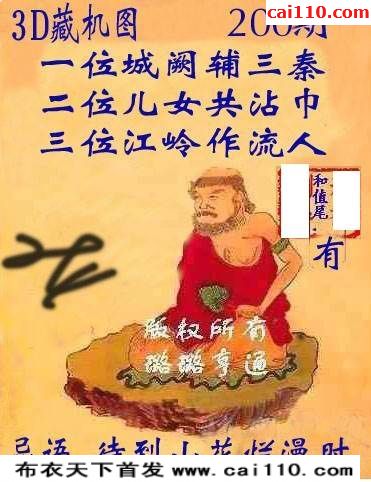 cai110.com
3D藏机图 200期
一位城阙辅三秦
二位儿女共沾巾
三位江岭作流人
和值尾
有
版权所有
璐璐亨通
布衣天下首发 www.cai110.com